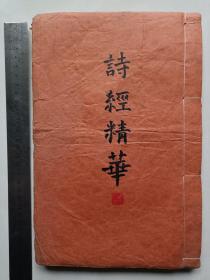 詩經精華